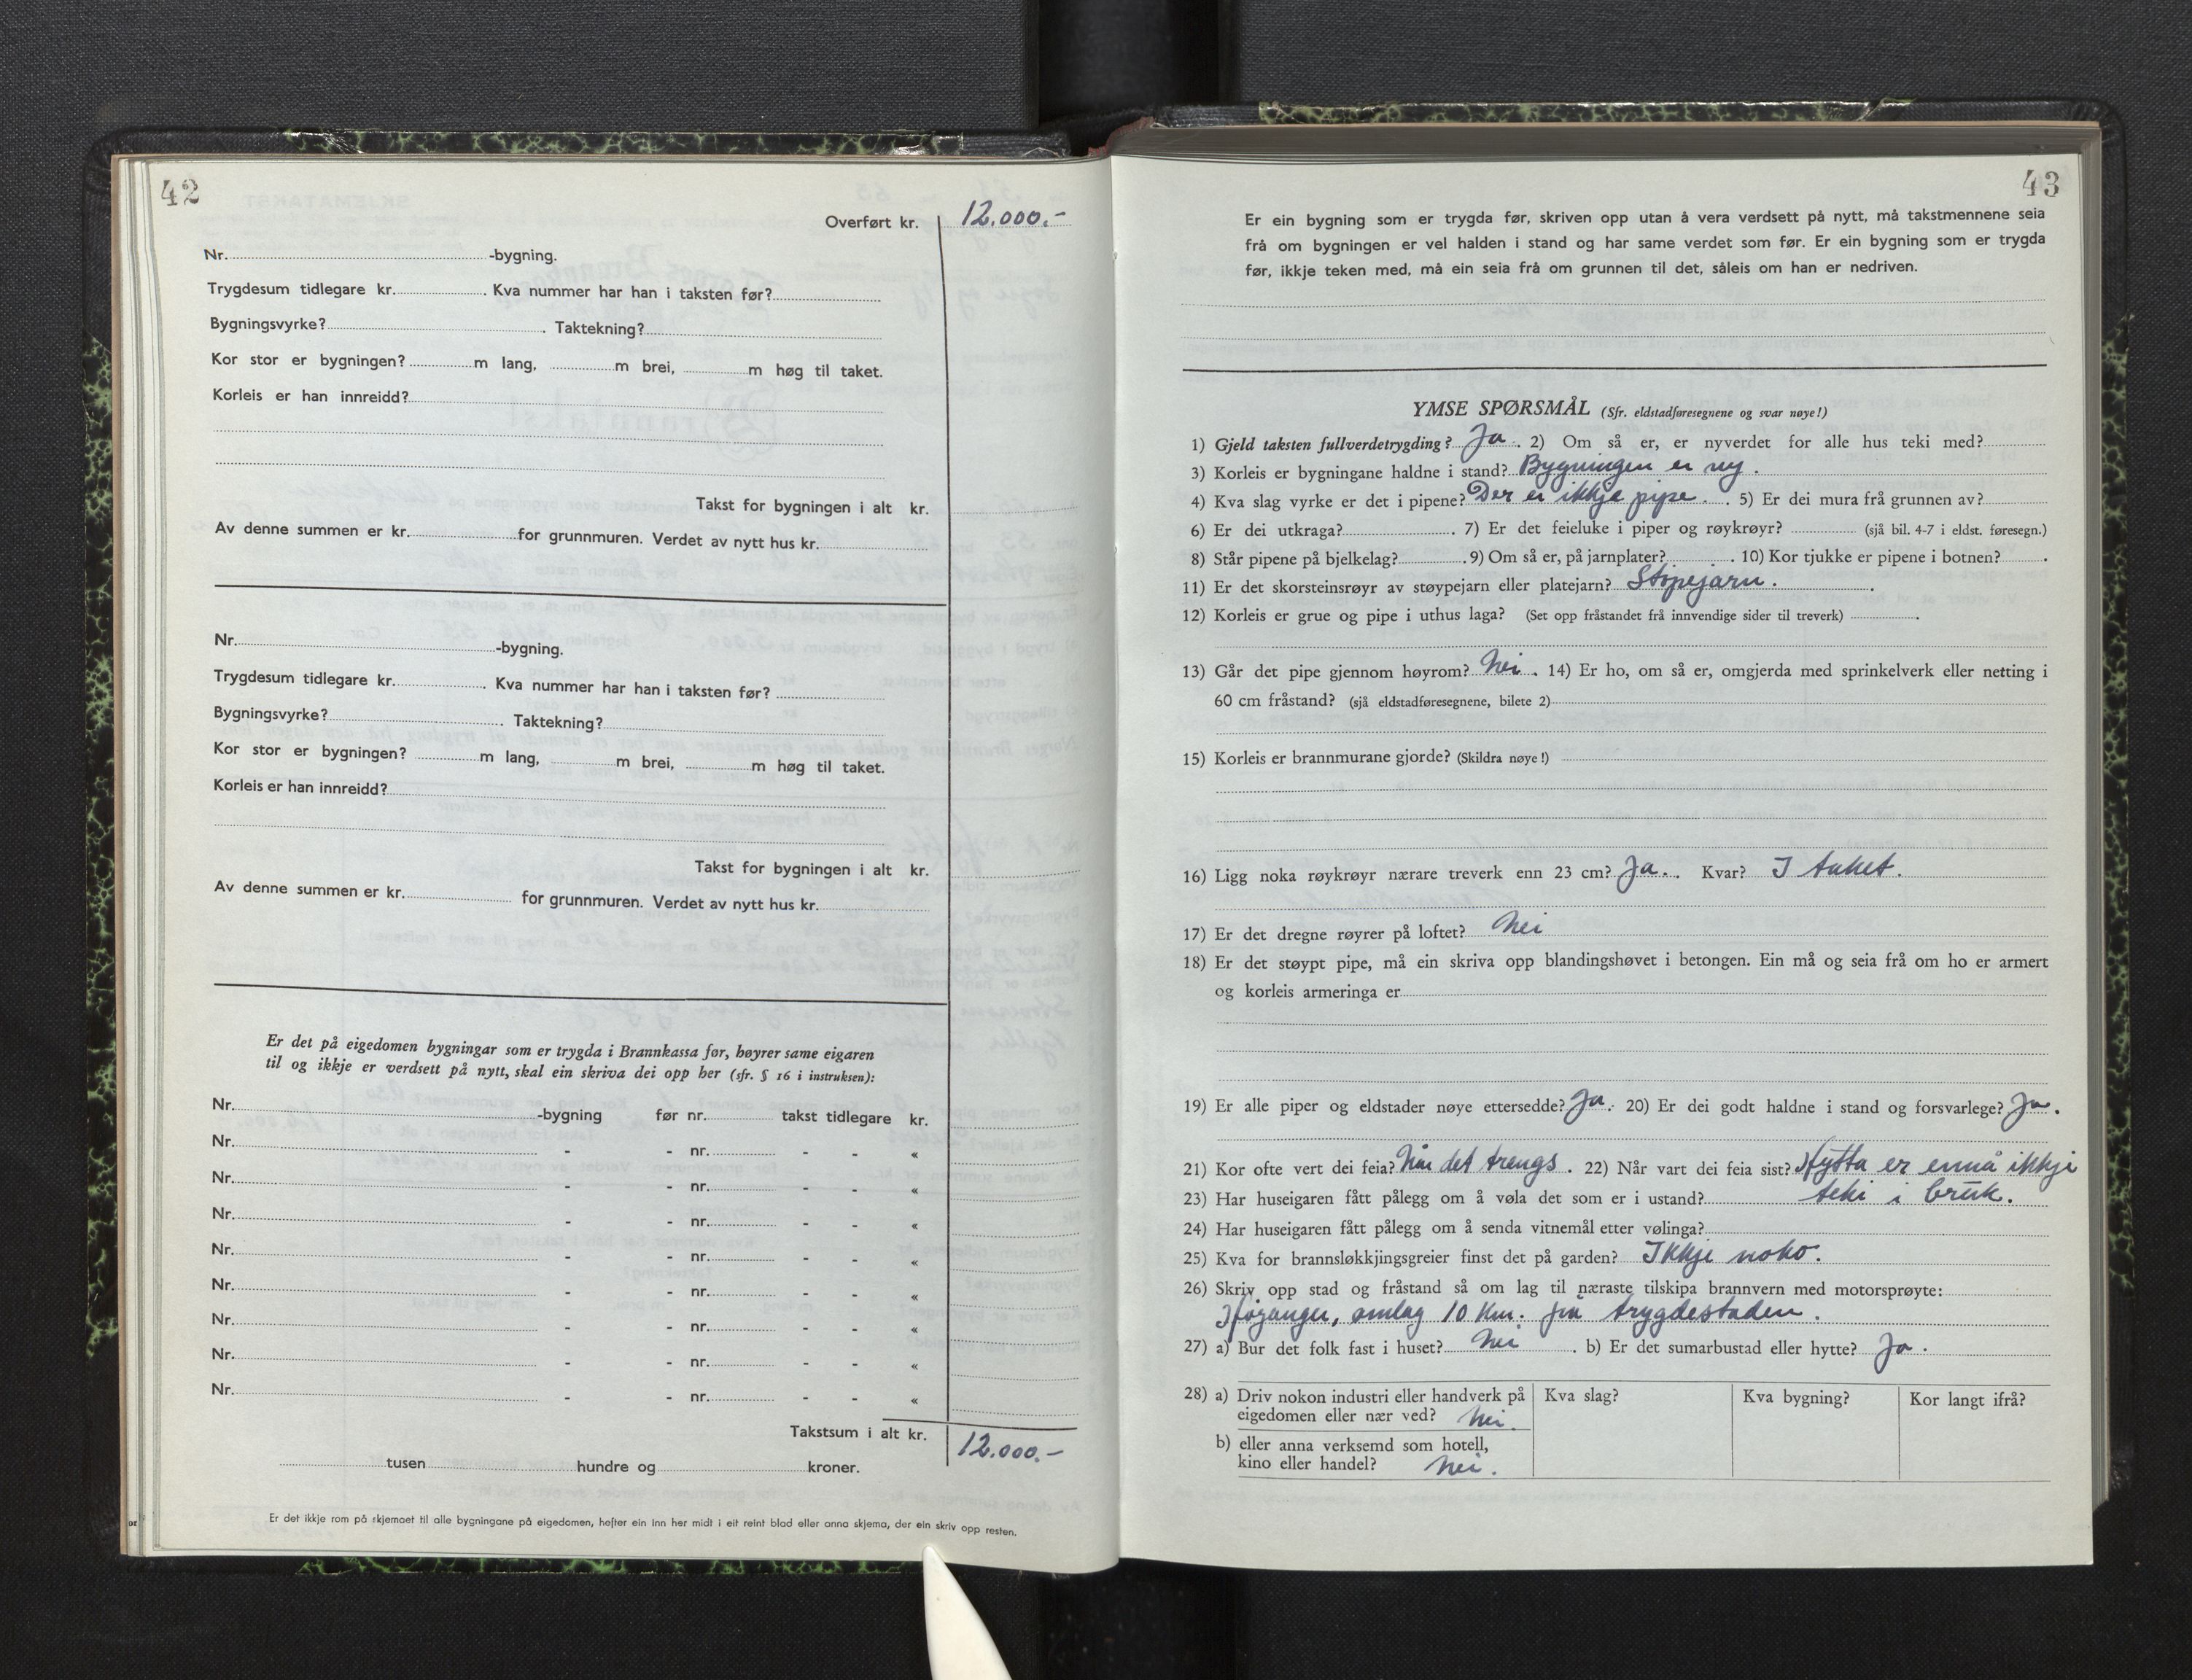 42
Overført kr. 12.000.-
Nr. -bygning.
Trygdesum tidlegare kr. . Kva nummer har han i taksten før?
Bygningsvyrke? . Taktekning?
Kor stor er bygningen? m lang, m brei, m høg til taket.
Korleis er han innreidd?
Takst for bygningen i alt kr.
Av denne summen er kr. for grunnmuren. Verdet av nytt hus kr.
Nr. -bygning.
Trygdesum tidlegare kr. . Kva nummer har han i taksten før?
Bygningsvyrke? . Taktekning?
Kor stor er bygningen? m lang, m brei, m høg til taket.
Korleis er han innreidd?
Takst for bygningen i alt kr.
Av denne summen er kr. for grunnmuren. Verdet av nytt hus kr.
Er det på eigedomen bygningar som er trygda i Brannkassa før, høyrer same eigaren
til og ikkje er verdsett på nytt, skal ein skriva dei opp her (sfr. § 16 i instruksen):
Nr. -bygning før nr. takst tidlegare kr.
Nr. - - nr. - - «
Nr. - - nr. - - «
Nr. - - nr. - - «
Nr. - - nr. - - «
Nr. - - nr. - - «
Nr. - - nr. - - «
Nr. - - nr. - - «
Nr. - - nr. - - «
Takstsum i alt kr. 12.000.-
tusen hundre og kroner.
Er det ikkje rom på skjemaet til alle bygningane på eigedomen, hefter ein inn her midt i eit reint blad eller anna skjema, der ein skriv opp resten.
43
Er ein bygning som er trygda før, skriven opp utan å vera verdsett på nytt, må takstmennene seia
frå om bygningen er vel halden i stand og har same verdet som før. Er ein bygning som er trygda
før, ikkje teken med, må ein seia frå om grunnen til det, såleis om han er nedriven.
YMSE SPØRSMÅL (Sfr. eldstadføresegnene og svar nøye!)
1) Gjeld taksten fullverdetrygding? Ja . 2) Om så er, er nyverdet for alle hus teki med?
3) Korleis er bygningane haldne i stand? Bygningen er ny .
4) Kva slag vyrke er det i pipene? Der er ikkje pipe . . 5) Er dei mura frå grunnen av?
6) Er dei utkraga? . 7) Er det feieluke i piper og røykrøyr? (sjå bil. 4-7 i eldst. føresegn.)
8) Står pipene på bjelkelag? . 9) Om så er, på jarnplater? . 10) Kor tjukke er pipene i botnen? .
11) Er det skorsteinsrøyr av støypejarn eller platejarn? Støpejarn . .
12) Korleis er grue og pipe i uthus laga? (Set opp fråstandet frå innvendige sider til treverk) .
13) Går det pipe gjennom høyrom? Nei . 14) Er ho, om så er, omgjerda med sprinkelverk eller netting i
60 cm fråstand? (sjå eldstadføresegnene, bilete 2)
15) Korleis er brannmurane gjorde? (Skildra nøye!)
16) Ligg noka røykrøyr nærare treverk enn 23 cm? Ja . . Kvar? I taket .
17) Er det dregne røyrer på loftet? Nei
18) Er det støypt pipe, må ein skriva opp blandingshøvet i betongen. Ein må og seia frå om ho er armert
og korleis armeringa er
19) Er alle piper og eldstader nøye ettersedde? Ja . 20) Er dei godt haldne i stand og forsvarlege? Ja .
21) Kor ofte vert dei feia? Når det trengs . 22) Når vart dei feia sist? Hytta er ennå ikkje
23) Har huseigaren fått pålegg om å vøla det som er i ustand? teki i bruk.
24) Har huseigaren fått pålegg om å senda vitnemål etter vølinga?
25) Kva for brannsløkkjingsgreier finst det på garden? Ikkje noko.
26) Skriv opp stad og fråstand så om lag til næraste tilskipa brannvern med motorsprøyte:
Høyanger, omlag 10 km. frå trygdestaden .
27) a) Bur det folk fast i huset? Nei . b) Er det sumarbustad eller hytte? Ja .
28) a) Driv nokon industri eller handverk på Kva slag? Kva bygning? Kor langt ifrå?
eigedomen eller nær ved? Nei.
b) eller anna verksemd som hotell,
kino eller handel? Nei.